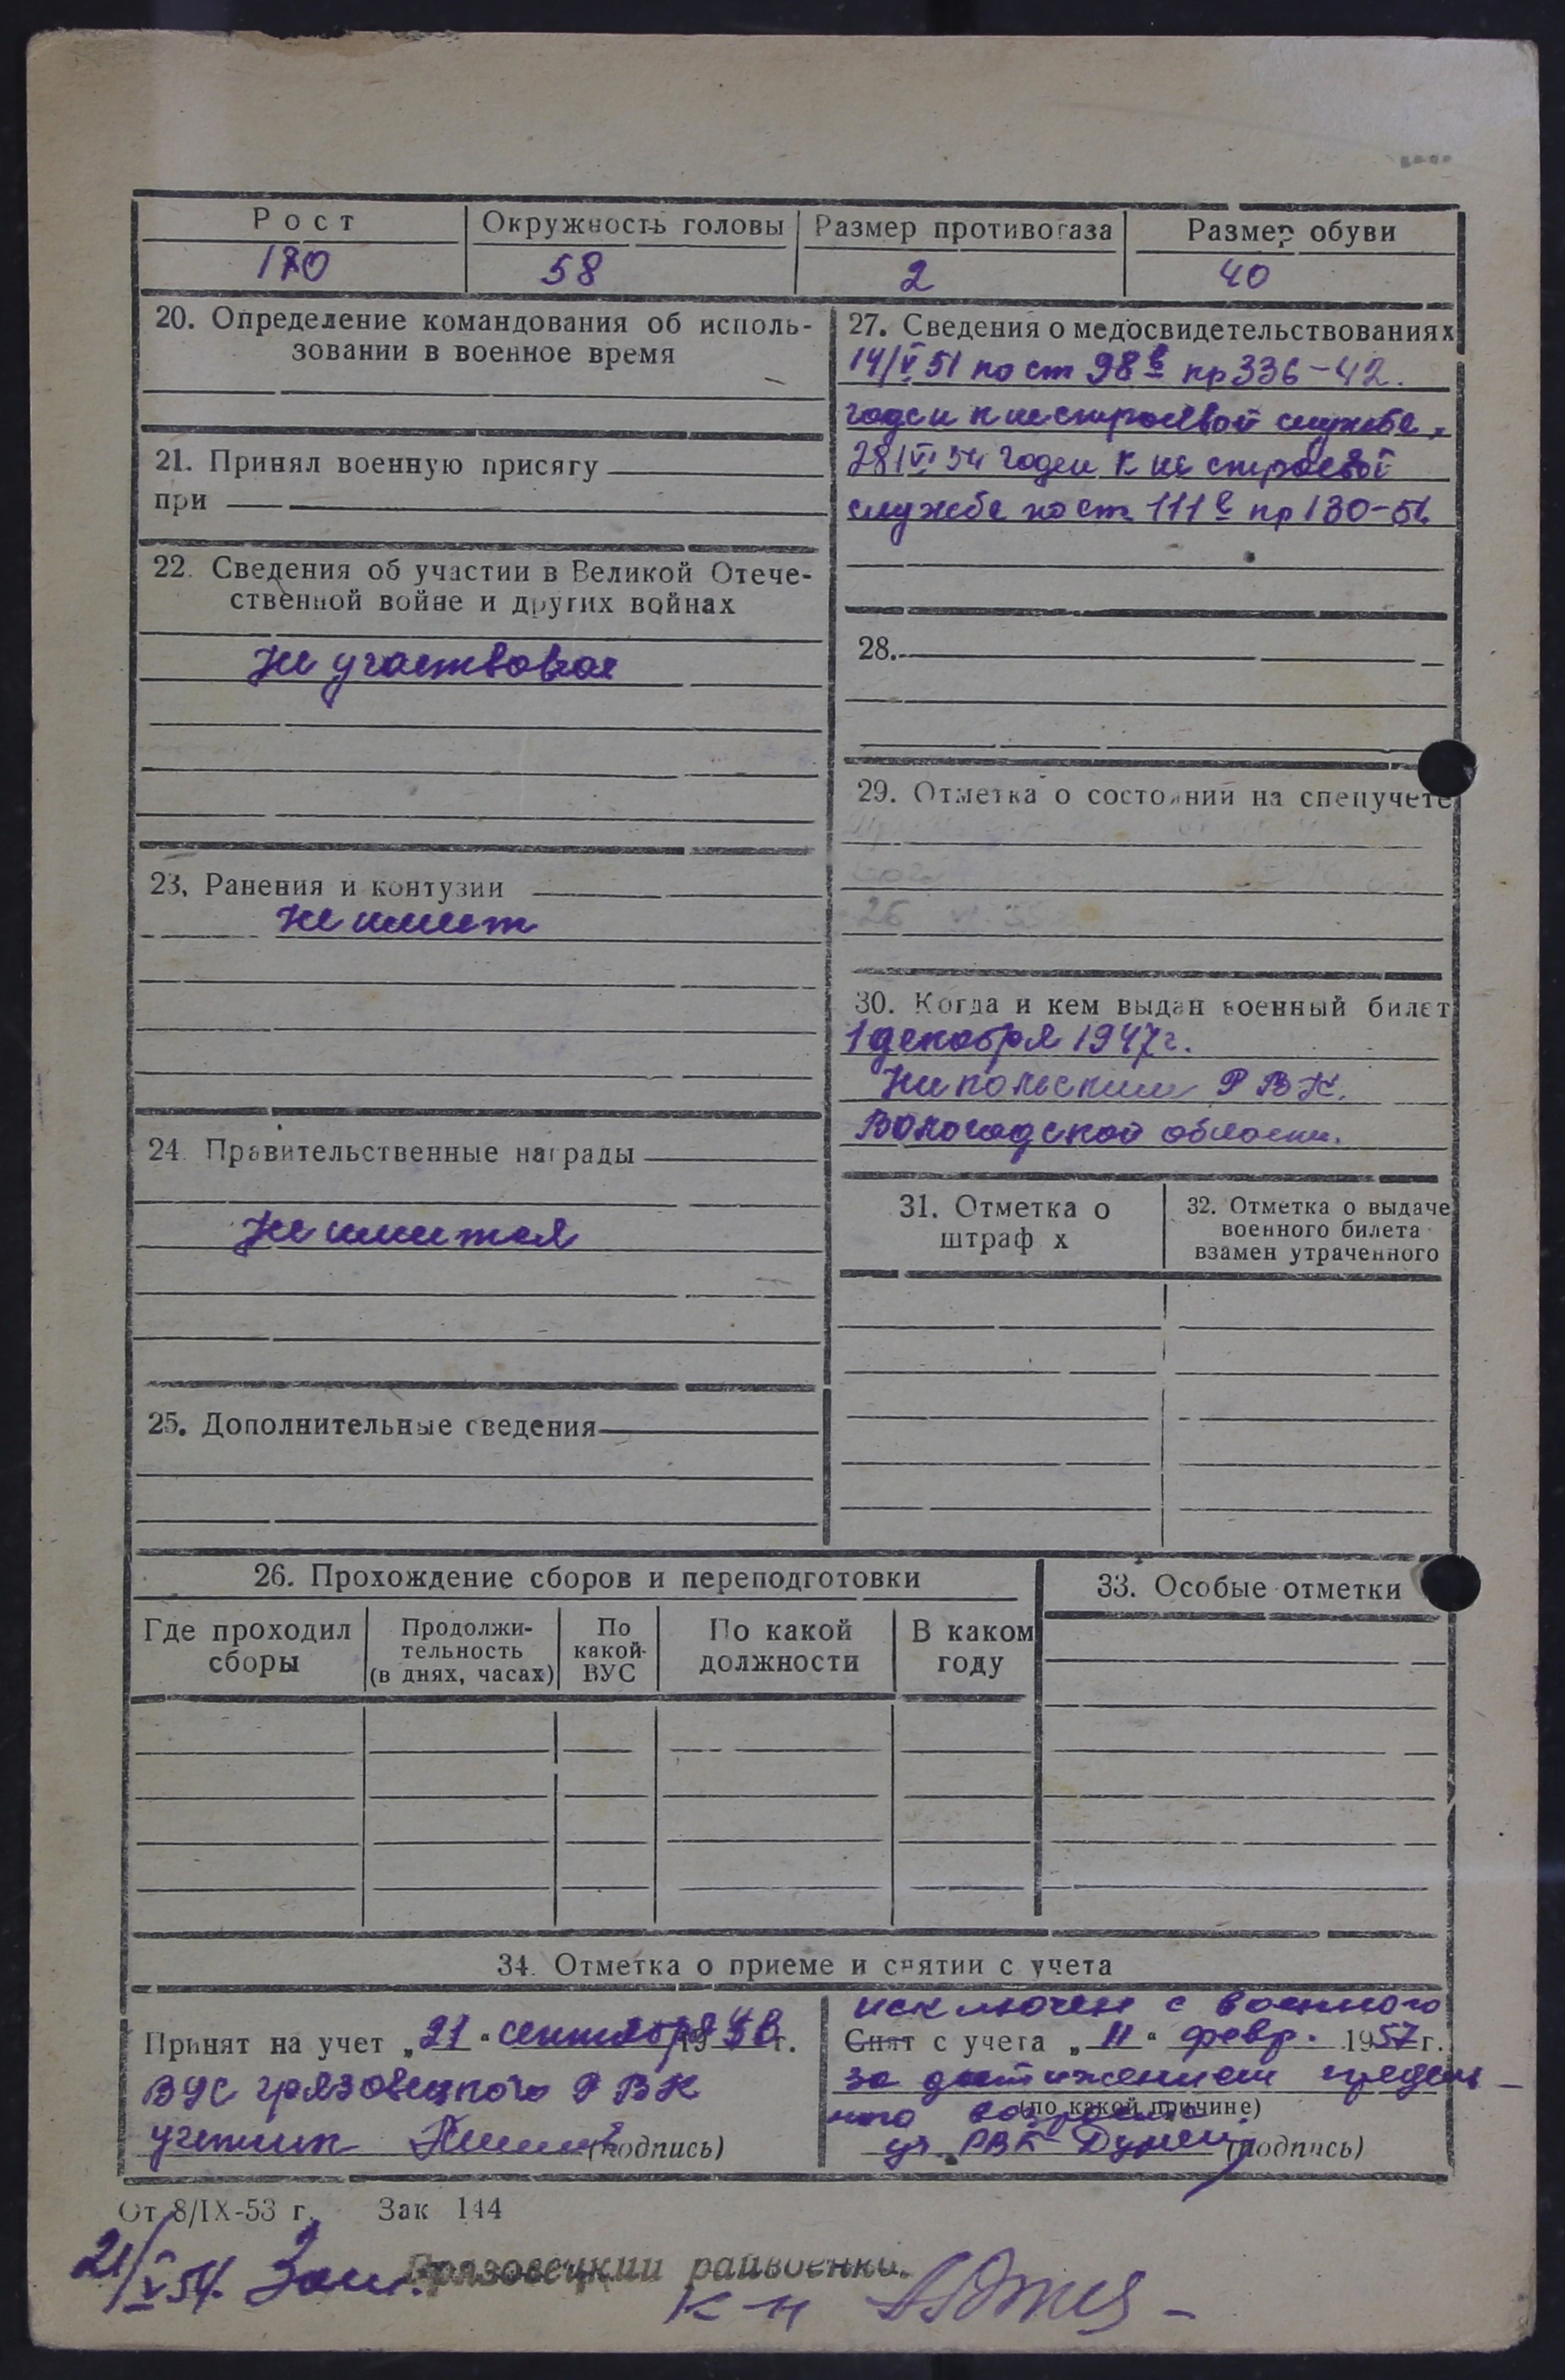 Рост
Окружность головы
Размер противогаза
Размер обуви
170
58
2
40
20. Определение командования об исполь-
зовании в военное время
21. Принял военную присягу
при
22. Сведения об участии в Великой Отече-
ственной войне и других войнах
Не участвовал
23. Ранения и контузии
Не имеет
24. Правительственные награды
Не имеет
25. Дополнительные сведения
27. Сведения о медосвидетельствованиях
14/V 51 по ст 98 в пр 336-42.
годен к нестроевой службе,
28/VI 54 годен к не строевой
службе по ст. 111 в пр 130-51
28.
29. Отметка о состоянии на спецучете
30. Когда и кем выдан военный билет
1 декабря 1947 г.
Никольским РВК.
Вологодской области.
31. Отметка о
штраф х
32. Отметка о выдаче
военного билета
взамен утраченного
26. Прохождение сборов и переподготовки
Где проходил
сборы
Продолжи-
тельность
(в днях, часах)
По
какой
ВУС
По какой
должности
В каком
году
33. Особые отметки
34. Отметка о приеме и снятии с учета
Принят на учет „21“ сентября 19 г.
ВУС Грязовецкого РВК
учетник (подпись)
исключен с военного
Снят с учета „11“ февр. 1957 г.
за достижением предель-
(по какой причине)
ного возраста.
РВК (подпись)
От 8/IX-53 г. Зак 144
21/V 54.
Грязовецкий райвоенко.
к-н